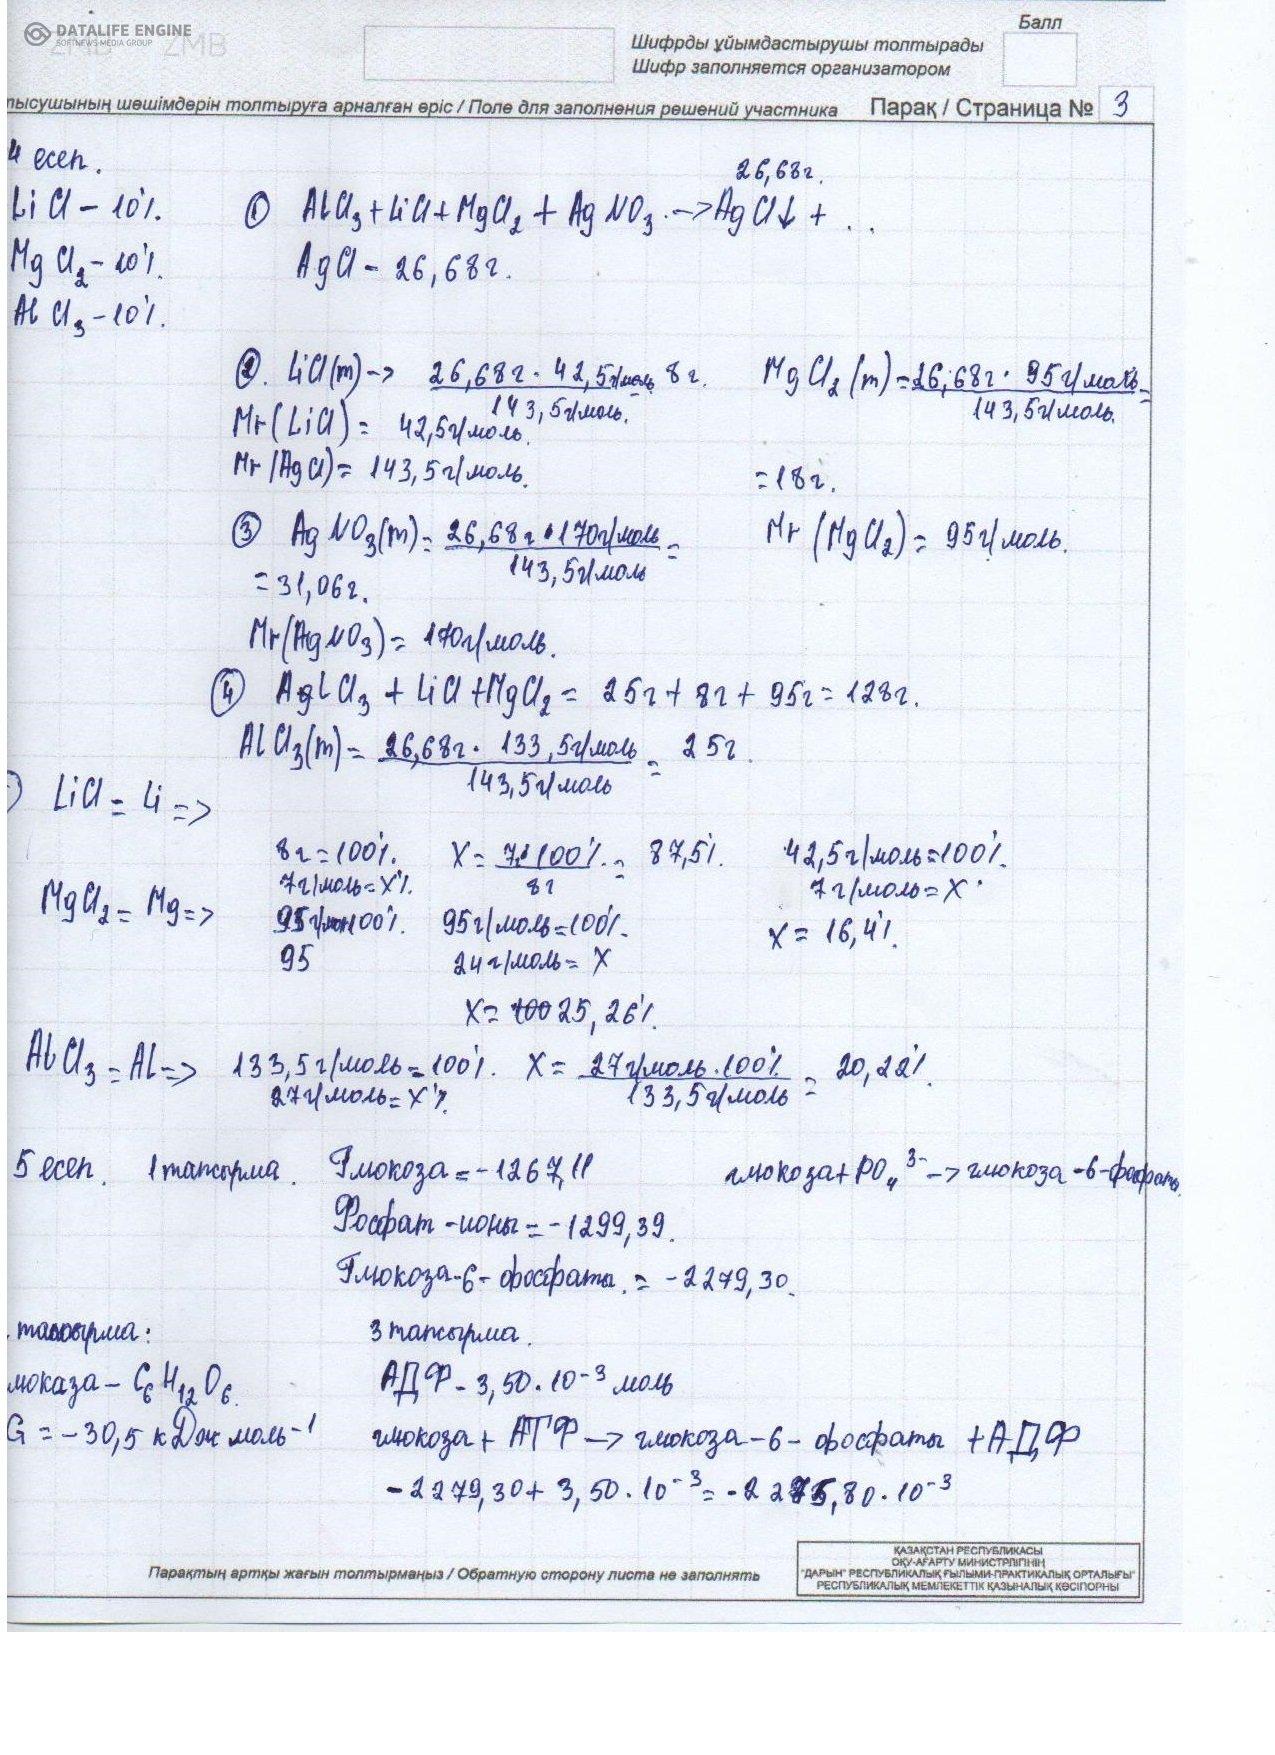 DATALIFE ENGINE
SOFTNEWS MEDIA GROUP
ZMB
Балл
Шифрды ұйымдастырушы толтырады
Шифр заполняется организатором
тысушының шешімдерін толтыруға арналған өріс / Поле для заполнения решений участника
Парақ / Страница № 3
4 есеп.
LiCl - 10%.
MgCl2 - 10%.
AlCl3 - 10%.
26,68г.
① AlCl3 + LiCl + MgCl2 + AgNO3 -> AgCl↓ + ...
AgCl - 26,68г.
②. LiCl(m) -> 26,68г · 42,5г/моль / 143,5г/моль. = 8г.
MgCl2(m) = 26,68г · 95г/моль / 143,5г/моль. =
Mr(LiCl) = 42,5г/моль.
Mr(AgCl) = 143,5г/моль.
= 18г.
③ AgNO3(m) = 26,68г · 170г/моль / 143,5г/моль =
Mr(MgCl2) = 95г/моль.
= 31,06г.
Mr(AgNO3) = 170г/моль.
④ AlCl3 + LiCl + MgCl2 = 25г + 8г + 95г = 128г.
AlCl3(m) = 26,68г · 133,5г/моль / 143,5г/моль = 25г.
) LiCl = Li =>
8г = 100%. X = 7·100% / 8г = 87,5%. 42,5г/моль = 100%.
7г/моль = X%. 7г/моль = X
MgCl2 = Mg =>
95г/моль = 100%. 95г/моль = 100%. X = 16,4%.
95 24г/моль = X
X = 25,26%.
AlCl3 = Al => 133,5г/моль = 100%. X = 27г/моль · 100% / 133,5г/моль = 20,22%.
27г/моль = X%.
5 есеп. 1 тапсырма. Глюкоза = -1267,11 глюкоза + PO4 3- -> глюкоза-6-фосфаты.
Фосфат-ионы = -1299,39.
Глюкоза-6-фосфаты. = -2279,30.
. тапсырма:
3 тапсырма.
люказа - C6H12O6.
АДФ - 3,50·10-3 моль
G = -30,5 кДж моль-1
глюкоза + АТФ -> глюкоза-6-фосфаты + АДФ
-2279,30 + 3,50·10-3 = -2275,80·10-3
Парақтың артқы жағын толтырмаңыз / Обратную сторону листа не заполнять
ҚАЗАҚСТАН РЕСПУБЛИКАСЫ
ОҚУ-АҒАРТУ МИНИСТРЛІГІНІҢ
"ДАРЫН" РЕСПУБЛИКАЛЫҚ ҒЫЛЫМИ-ПРАКТИКАЛЫҚ ОРТАЛЫҒЫ"
РЕСПУБЛИКАЛЫҚ МЕМЛЕКЕТТІК ҚАЗЫНАЛЫҚ КӘСІПОРНЫ